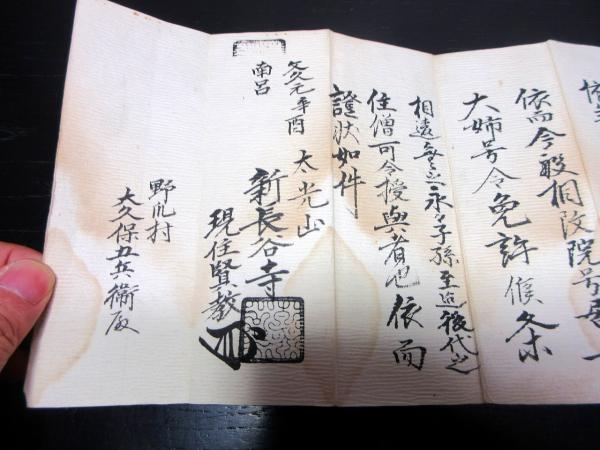 依而今般相改院号居
大姉号令免許候条
相違無之永々子孫至迄後代之
住僧可令授與者也依而
證状如件
文久元辛酉
南呂
太光山
新長谷寺
現住賢教
野爪村
大久保丑兵衛殿